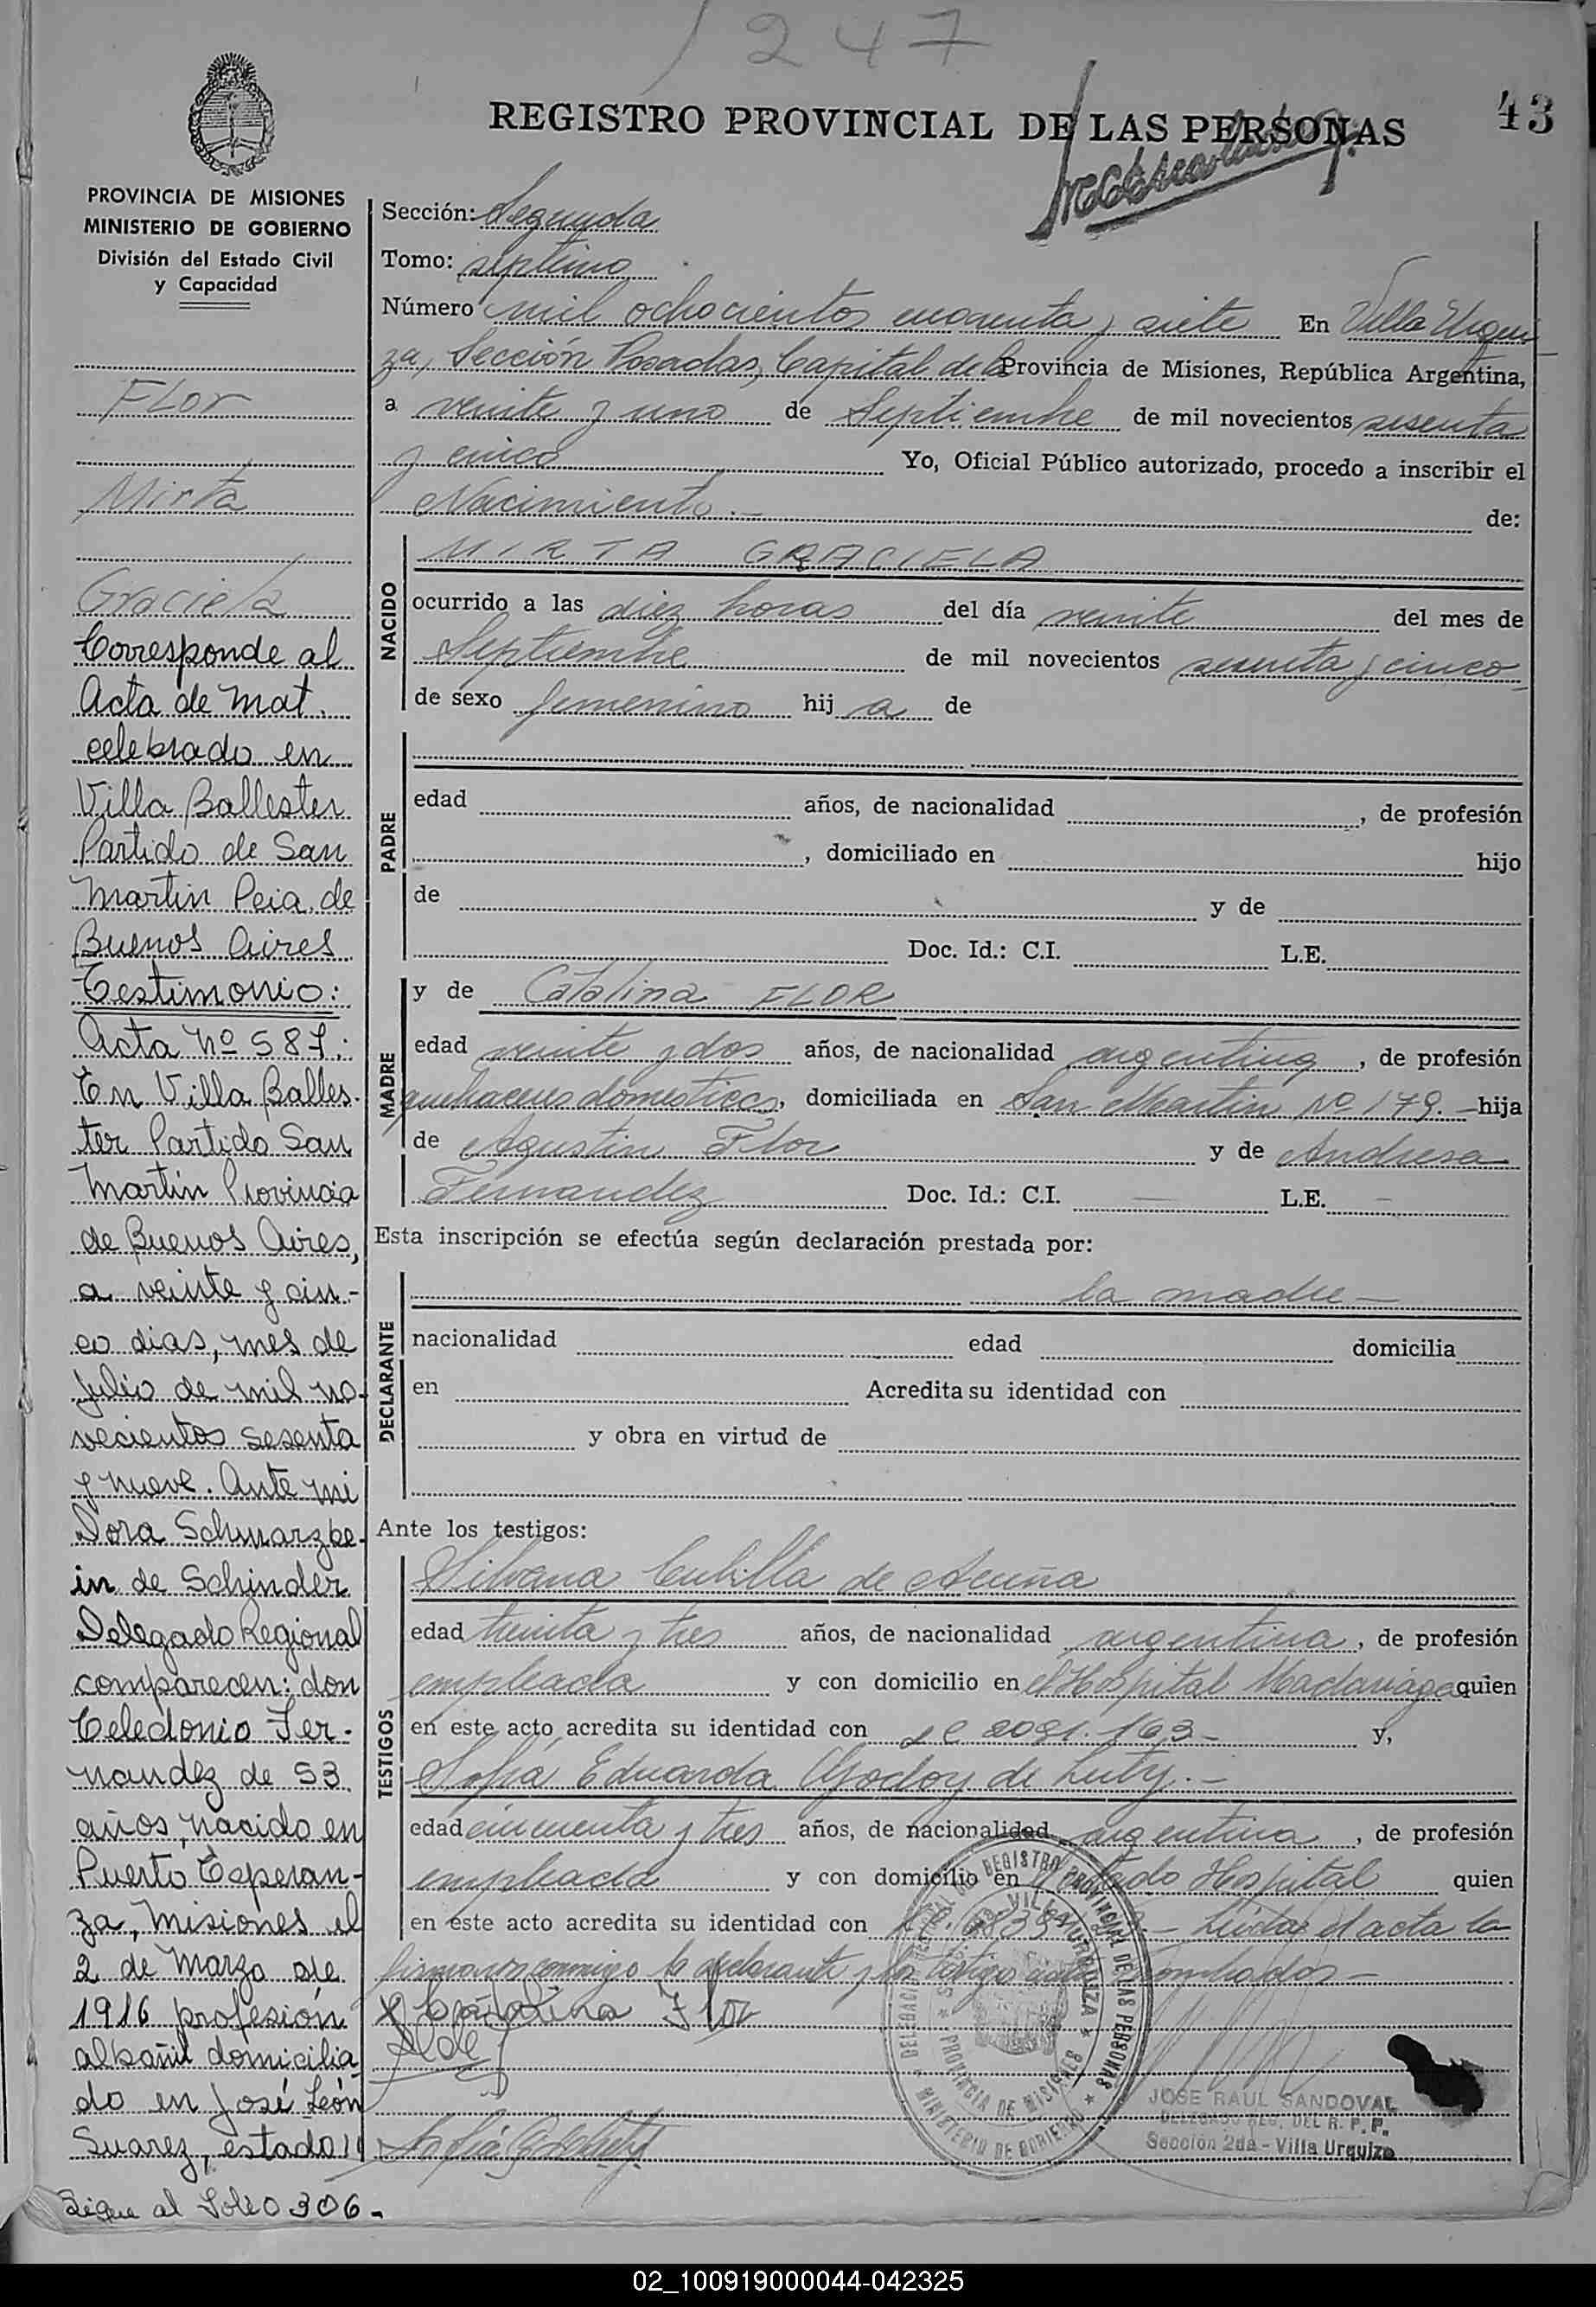 1247
REGISTRO PROVINCIAL DE LAS PERSONAS
43
PROVINCIA DE MISIONES
MINISTERIO DE GOBIERNO
División del Estado Civil
y Capacidad
Flor
Mirta
Graciela
Corresponde al
Acta de Mat.
celebrado en
Villa Ballester
Partido de San
Martin Pcia. de
Buenos Aires
Testimonio:
Acta Nº 587:
En Villa Balles-
ter Partido San
Martín Provincia
de Buenos Aires,
a veinte y cin-
co dias, mes de
julio de mil no-
vecientos sesenta
y nueve. Ante mi
Dora Schwarzbe-
in de Schinder
Delegado Regional
comparecen: don
Celedonio Fer-
nandez de 53
años, nacido en
Puerto Esperan-
za, Misiones el
2 de Marzo de
1916 profesión
albañil domicilia
do en José León
Suarez, estado
Sigue al Folio 306.-
Sección: Segunda
Tomo: septimo
Número mil ochocientos cuarenta y siete En Villa Urqui
za, Sección Posadas, Capital de la Provincia de Misiones, República Argentina,
a veinte y uno de Septiembre de mil novecientos sesenta
y cinco Yo, Oficial Público autorizado, procedo a inscribir el
Nacimiento.- de:
NACIDO
MIRTA GRACIELA
ocurrido a las diez horas del día veinte del mes de
Septiembre de mil novecientos sesenta y cinco
de sexo femenino hija de
PADRE
edad años, de nacionalidad , de profesión
, domiciliado en hijo
de y de
Doc. Id.: C.I. L.E.
MADRE
y de Catalina FLOR
edad veinte y dos años, de nacionalidad argentina, de profesión
quehaceres domesticos, domiciliada en San Martin Nº 179.- hija
de Agustin Flor y de Andresa
Fernandez Doc. Id.: C.I. — L.E. —
Esta inscripción se efectúa según declaración prestada por:
DECLARANTE
la madre —
nacionalidad edad domicilia
en Acredita su identidad con
y obra en virtud de
Ante los testigos:
TESTIGOS
Silvana Cubilla de Acuña
edad treinta y tres años, de nacionalidad argentina, de profesión
empleada y con domicilio en el Hospital Madariaga quien
en este acto acredita su identidad con y,
Sofía Eduarda Godoy de
edad cincuenta y tres años, de nacionalidad argentina, de profesión
empleada y con domicilio en Hospital quien
en este acto acredita su identidad con el acta la
firmaron conmigo la declarante y
Catalina Flor
JOSE RAUL SANDOVAL
DELEGADO REG. DEL R. P. P.
Sección 2da - Villa Urquiza
02_100919000044-042325